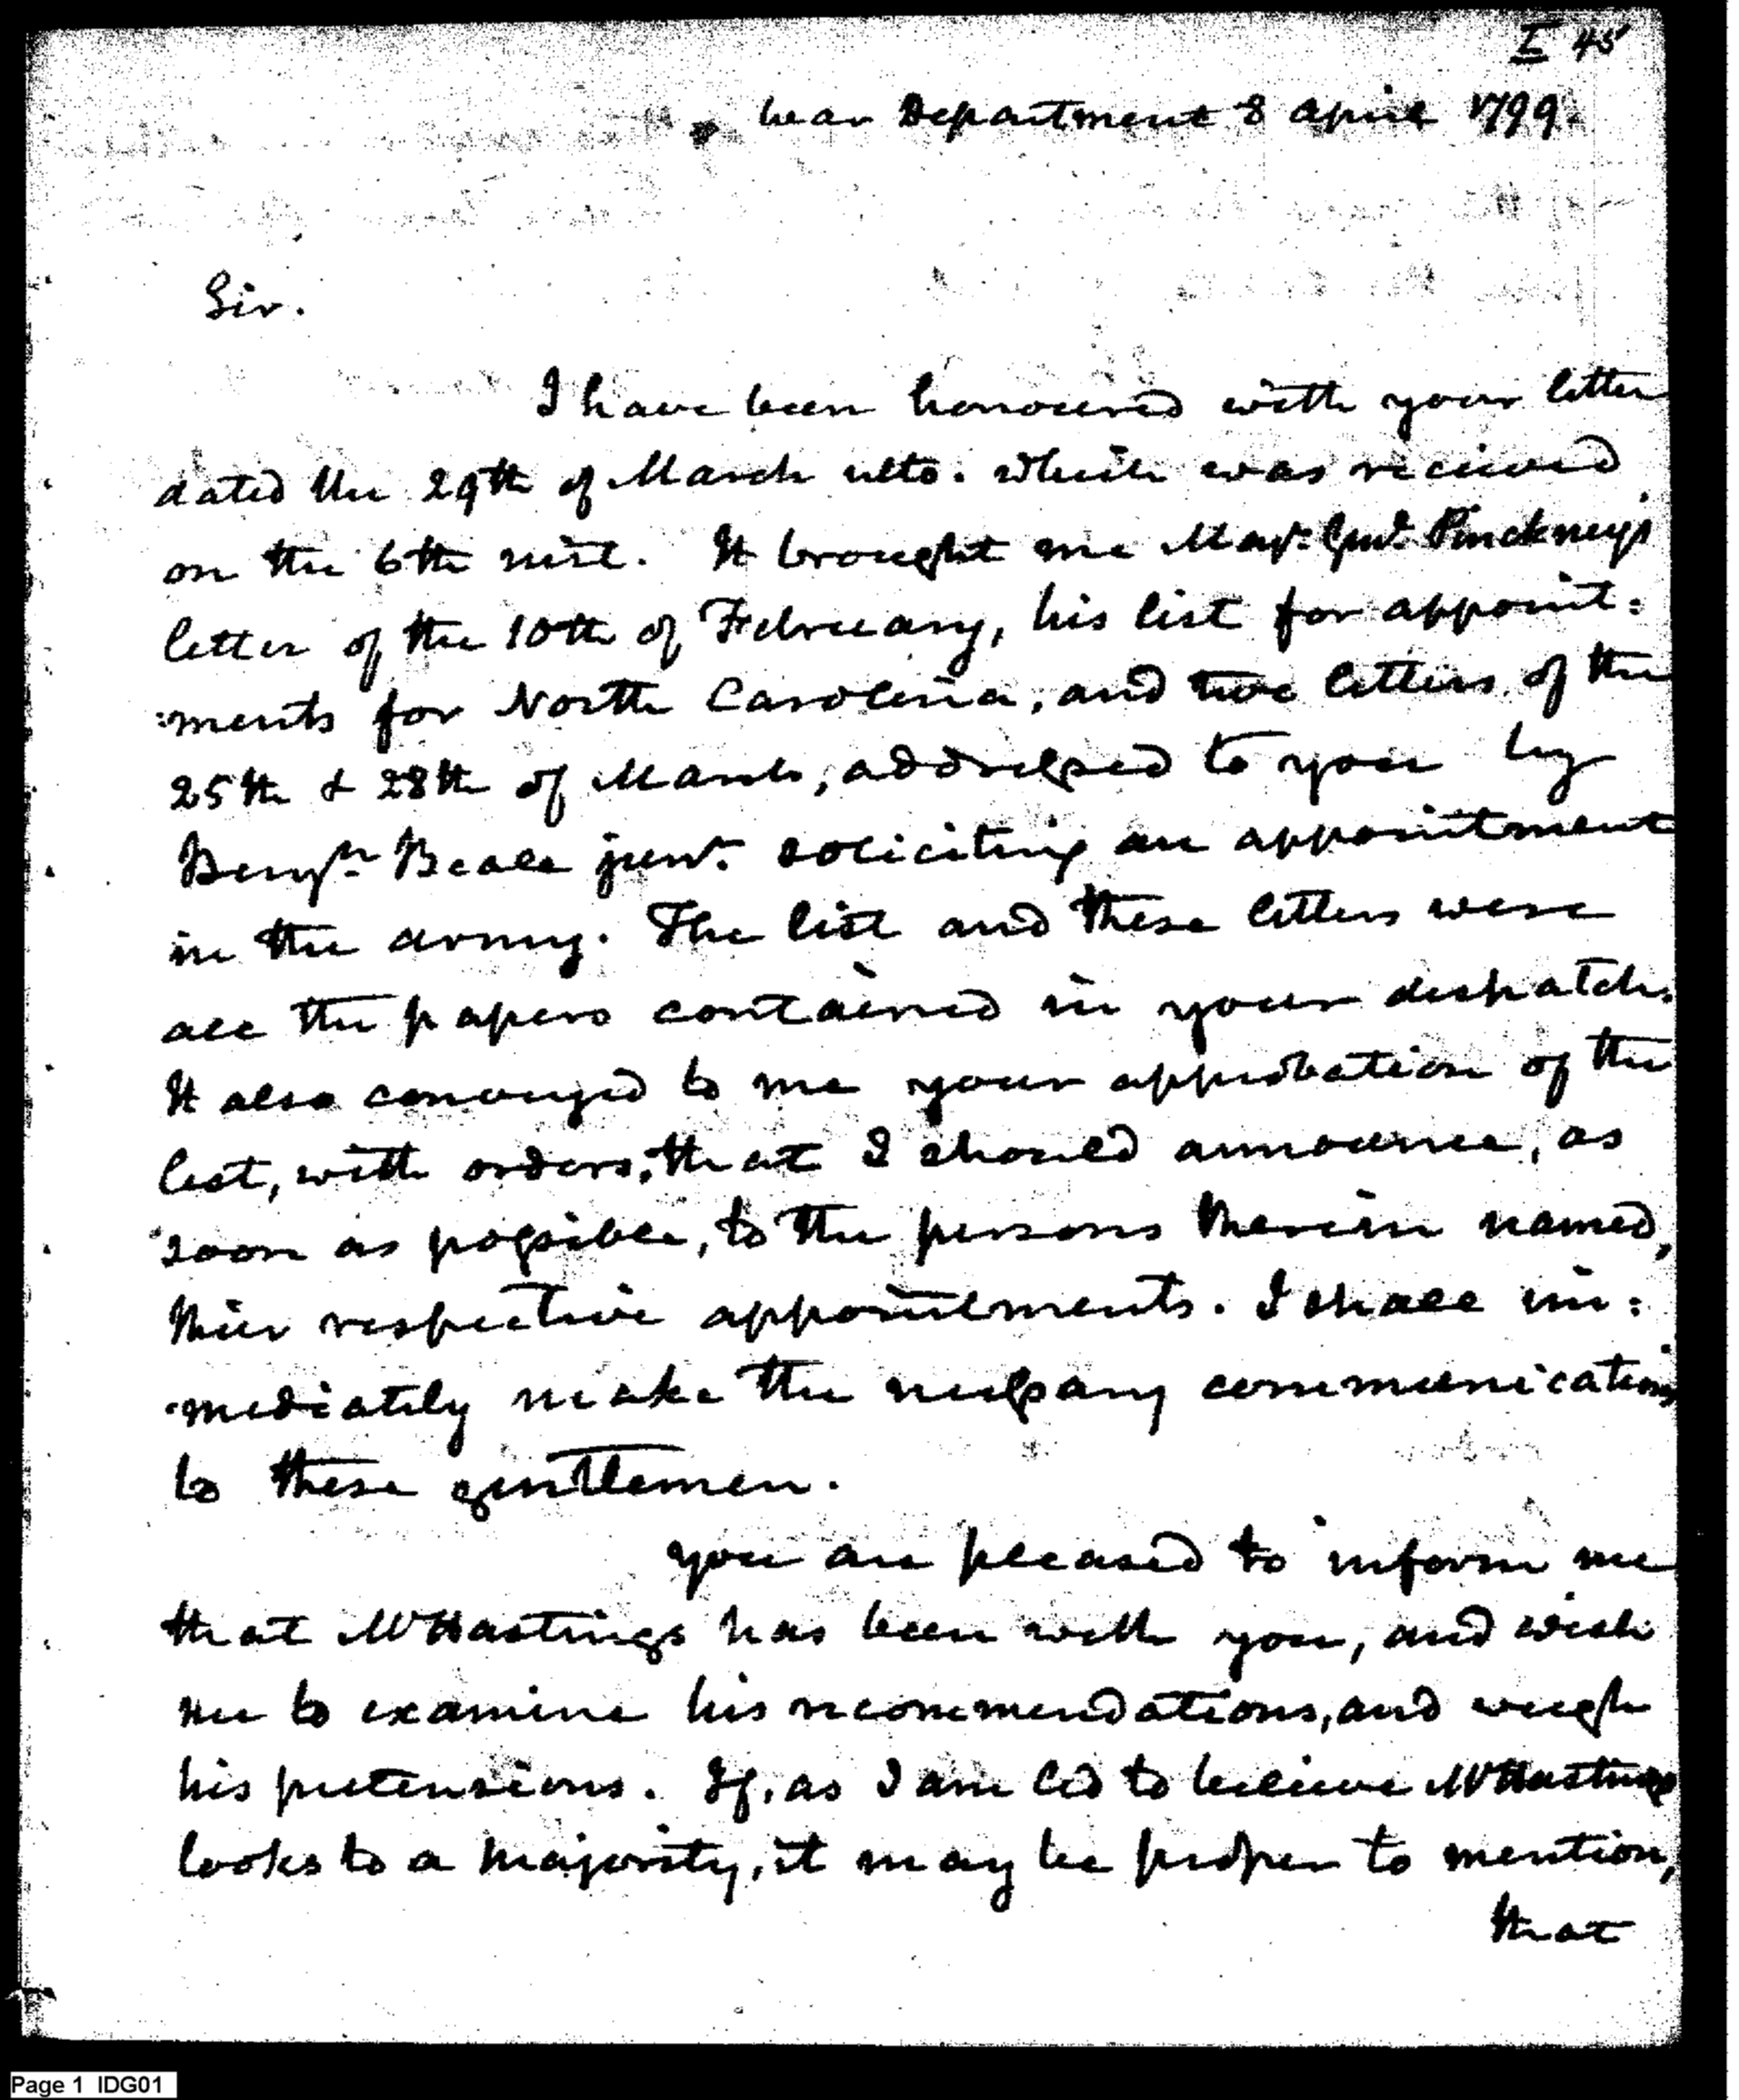 I 45
War Department 8 April 1799.
Sir.
I have been honoured with your letter
dated the 29th of March ulto. which was received
on the 6th inst. It brought me Majr. Genl. Pinckney's
letter of the 10th of February, his list for appoint:
:ments for North Carolina, and two letters of the
25th & 28th of March, addressed to you by
Benjn. Beale junr. soliciting an appointment
in the army. The list and these letters were
all the papers contained in your dispatch.
It also conveyed to me your approbation of the
list, with orders, that I should announce, as
soon as possible, to the persons therein named,
their respective appointments. I shall im:
:mediately make the necessary communications
to these gentlemen.
You are pleased to inform me
that Mr Hastings has been with you, and wish
me to examine his recommendations, and weigh
his pretensions. If, as I am led to believe Mr Hastings
looks to a majority, it may be proper to mention,
that
Page 1 IDG01